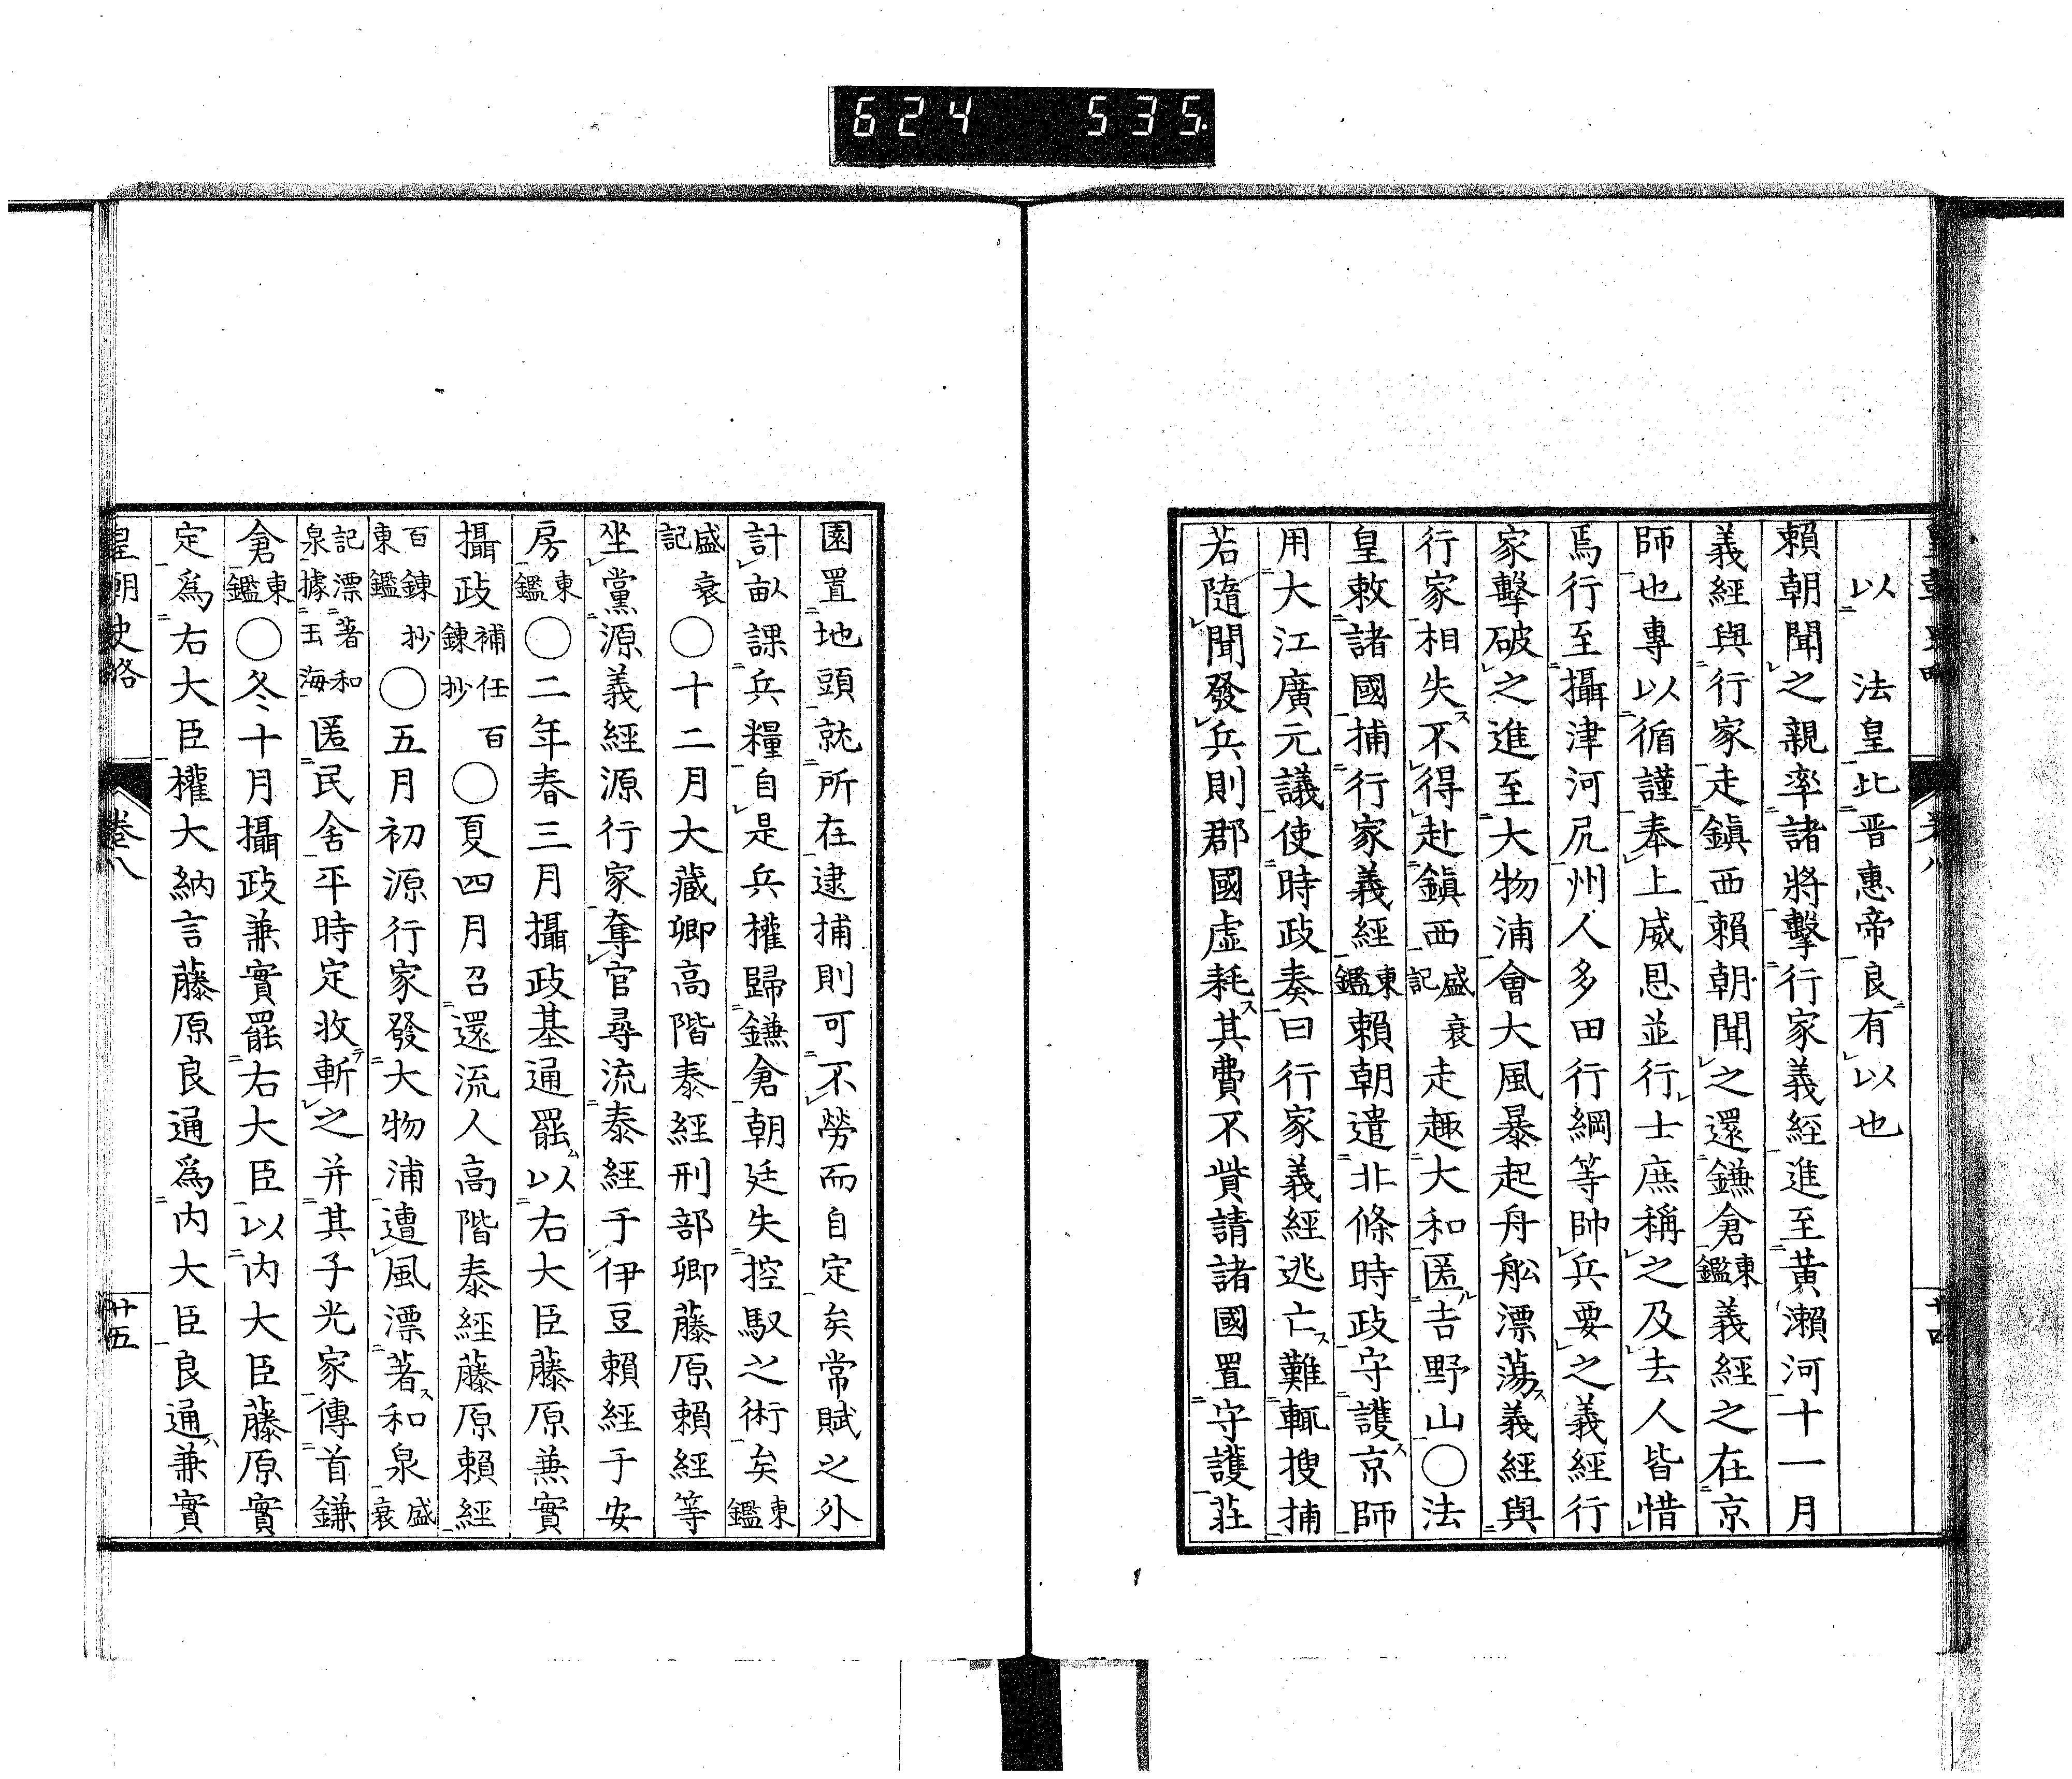 624 535
以 法皇比晋惠帝良有以也
賴朝聞之親率諸將擊行家義經進至黃瀨河十一月
義經與行家走鎭西賴朝聞之還鎌倉東鑑義經之在京
師也專以循謹奉上威恩並行士庶稱之及去人皆惜
焉行至攝津河尻州人多田行綱等帥兵要之義經行
家擊破之進至大物浦會大風暴起舟舩漂蕩義經與
行家相失不得赴鎭西盛衰記走趣大和匿吉野山〇法
皇敕諸國捕行家義經東鑑賴朝遣北條時政守護京師
用大江廣元議使時政奏曰行家義經逃亡難輒搜捕
若隨聞發兵則郡國虛耗其費不貲請諸國置守護莊
園置地頭就所在逮捕則可不勞而自定矣常賦之外
計畝課兵糧自是兵權歸鎌倉朝廷失控馭之術矣東鑑
盛衰記〇十二月大藏卿高階泰經刑部卿藤原賴經等
坐黨源義經源行家奪官尋流泰經于伊豆賴經于安
房東鑑〇二年春三月攝政基通罷以右大臣藤原兼實
攝政補任百鍊抄〇夏四月召還流人高階泰經藤原賴經
百鍊抄東鑑〇五月初源行家發大物浦遭風漂著和泉盛衰
記漂著和泉據玉海匿民舍平時定收斬之并其子光家傳首鎌
倉東鑑〇冬十月攝政兼實罷右大臣以內大臣藤原實
定爲右大臣權大納言藤原良通爲內大臣良通兼實
皇朝史略 卷八 廿五